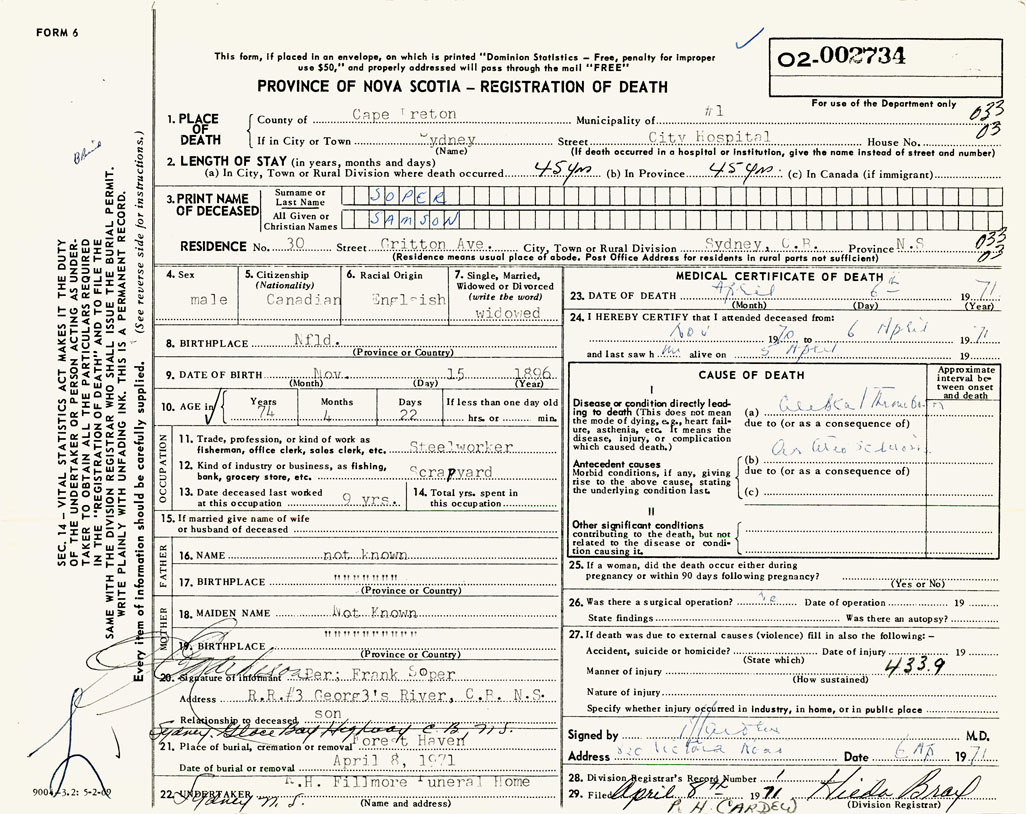 FORM 6
This form, if placed in an envelope, on which is printed "Dominion Statistics – Free, penalty for improper
use $50," and properly addressed will pass through the mail "FREE"
PROVINCE OF NOVA SCOTIA – REGISTRATION OF DEATH
02-002734
For use of the Department only
1. PLACE OF DEATH
County of Cape Breton Municipality of #1 033
If in City or Town Sydney Street City Hospital House No. 03
(Name) (If death occurred in a hospital or institution, give the name instead of street and number)
2. LENGTH OF STAY (in years, months and days)
(a) In City, Town or Rural Division where death occurred 45 yrs. (b) In Province 45 yrs. (c) In Canada (if immigrant)
3. PRINT NAME OF DECEASED
Surname or Last Name SOPER
All Given or Christian Names SAMSON
RESIDENCE No. 30 Street Gritton Ave. City, Town or Rural Division Sydney, C.B. Province N.S 033
(Residence means usual place of abode. Post Office Address for residents in rural parts not sufficient) 03
4. Sex
male
5. Citizenship
(Nationality)
Canadian
6. Racial Origin
English
7. Single, Married,
Widowed or Divorced
(write the word)
widowed
8. BIRTHPLACE Nfld.
(Province or Country)
9. DATE OF BIRTH Nov. 15 1896
(Month) (Day) (Year)
10. AGE in Years Months Days If less than one day old
74 4 22 hrs. or min.
OCCUPATION
11. Trade, profession, or kind of work as
fisherman, office clerk, sales clerk, etc. Steelworker
12. Kind of industry or business, as fishing,
bank, grocery store, etc. Scrapyard
13. Date deceased last worked
at this occupation 9 yrs.
14. Total yrs. spent in
this occupation
15. If married give name of wife
or husband of deceased
FATHER
16. NAME not known
17. BIRTHPLACE """""""
(Province or Country)
MOTHER
18. MAIDEN NAME Not Known
19. BIRTHPLACE """"""""""
(Province or Country)
20. Signature of informant Per; Frank Soper
Address R.R.#3 Georg3's River, C.B. N.S.
Relationship to deceased son
Sydney Glace Bay Highway C.B., N.S.
21. Place of burial, cremation or removal Forest Haven
Date of burial or removal April 8, 1971
22. UNDERTAKER R.H. Fillmore Funeral Home
Sydney N.S. (Name and address)
MEDICAL CERTIFICATE OF DEATH
23. DATE OF DEATH April 6th 1971
(Month) (Day) (Year)
24. I HEREBY CERTIFY that I attended deceased from:
Nov 1970 to 6 April 1971
and last saw him alive on 5 April 19
CAUSE OF DEATH
Approximate
interval be-
tween onset
and death
I
Disease or condition directly lead-
ing to death (This does not mean
the mode of dying, e.g., heart fail-
ure, asthenia, etc. It means the
disease, injury, or complication
which caused death.)
(a) Cerebral Thrombosis
due to (or as a consequence of)
Antecedent causes
Morbid conditions, if any, giving
rise to the above cause, stating
the underlying condition last.
(b)
due to (or as a consequence of)
(c)
II
Other significant conditions
contributing to the death, but not
related to the disease or condi-
tion causing it.
25. If a woman, did the death occur either during
pregnancy or within 90 days following pregnancy?
(Yes or No)
26. Was there a surgical operation? Date of operation 19
State findings Was there an autopsy?
27. If death was due to external causes (violence) fill in also the following: –
Accident, suicide or homicide? Date of injury 19
(State which)
Manner of injury 433.9
(How sustained)
Nature of injury
Specify whether injury occurred in industry, in home, or in public place
Signed by M.D.
Address Victoria Road Date 6 Ap 1971
28. Division Registrar's Record Number
29. Filed April 8th 1971 Hilda Bray
R. H. (CARDEW) (Division Registrar)
SEC. 14 – VITAL STATISTICS ACT MAKES IT THE DUTY
OF THE UNDERTAKER OR PERSON ACTING AS UNDER-
TAKER TO OBTAIN ALL THE PARTICULARS REQUIRED
IN THE "REGISTRATION OF DEATH" AND TO FILE THE
SAME WITH THE DIVISION REGISTRAR WHO SHALL ISSUE THE BURIAL PERMIT.
WRITE PLAINLY WITH UNFADING INK. THIS IS A PERMANENT RECORD.
Every item of information should be carefully supplied. (See reverse side for instructions.)